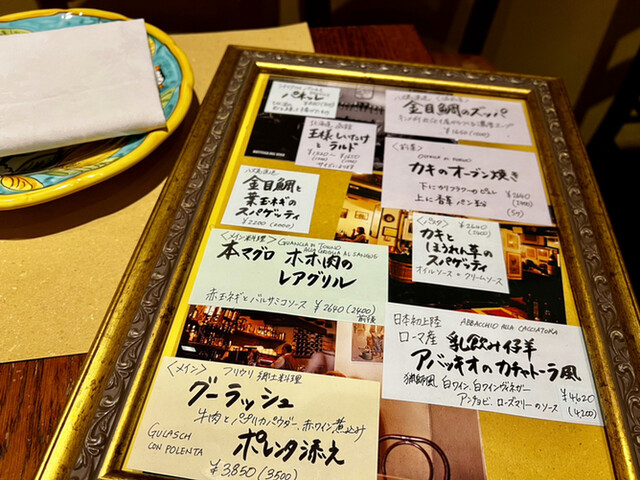 パネッレ
北海道 函館
王様しいたけ
と ラルド
金目鯛のズッパ
¥1650 (1500)
<前菜>
カキのオーブン焼き
下にカリフラワーのピュレ
上に香草パン粉
¥2640
(2400)
金目鯛と
葉玉ネギの
スパゲッティ
¥2200 (2000)
<パスタ>
¥2640
(2400)
カキと
ほうれん草の
スパゲッティ
オイルソース・クリームソース
<メイン料理> GUANCIA DI TONNO
ALLA GRIGLIA AL SANGUE
本マグロ ホホ肉の
レアグリル
赤玉ネギとバルサミコソース ¥2640 (2400)
日本初上陸 ABBACCHIO ALLA CACCIATORA
ローマ産 乳飲み仔羊
アバッキオのカチャトーラ風
猟師風 白ワイン、白ワインヴィネガー
アンチョビ、ローズマリーのソース
¥4620
(4200)
<メイン> フリウリ 郷土料理
グーラッシュ
牛肉とパプリカパウダー、赤ワイン煮込み
GULASCH
CON POLENTA
ポレンタ添え
¥3850 (3500)